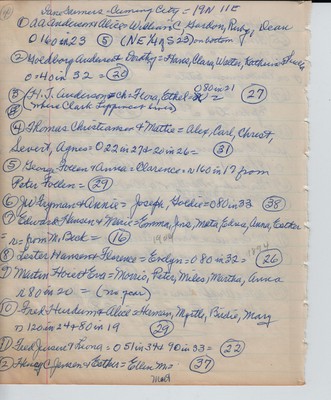 Farmers - Cuming City = 19N 11E
① AA Anderson + Alice = William C Gordon, Ruby, Dean
0160 in 23 ⑤ (NE¼ of S23) on bottom
Anders + Dorthy = Hans, Clara, Walter, Kathrine
0=40 in 32 = ⑳
③ H. J. Anderson + Ch = Flora, Ethel = 080 in 21 ㉗
(where Clark Lippincott lives)
④ Thomas Christiansen + Mattie = Alex, Carl, Christ,
Severt, Agnes = 022 in 27 + 20 in 26 = ㉛
⑤ George Foden + Anna = Clarence = r160 in 17 from
Peter Foden = ㉙
⑥ Joe Gryman + Annie = Joseph, Goldie = 080 in 33 ㊳
⑦ Edward Hansen + Marie = Emma, Jens, Meta, Edna, Anna, Esther
= r = from M. Beck = ⑯ 1904
⑧ Lester Hansen + Florence = Evelyn = 080 in 32 = 1894 ㉖
⑨ Martin Hovet Eva = Morris, Peter, Miles, Martha, Anna
r80 in 20 = (no year)
⑩ Fred Hurdum + Alice = Herman, Myrtle, Birdie, Mary
r120 in 24 + 80 in 19 ㉙
⑪ Fred Jensen + Leona = 0 51 in 34 + 90 in 33 = ㉒
⑫ Henry C Jensen + Esther = Ellen M = ㊲